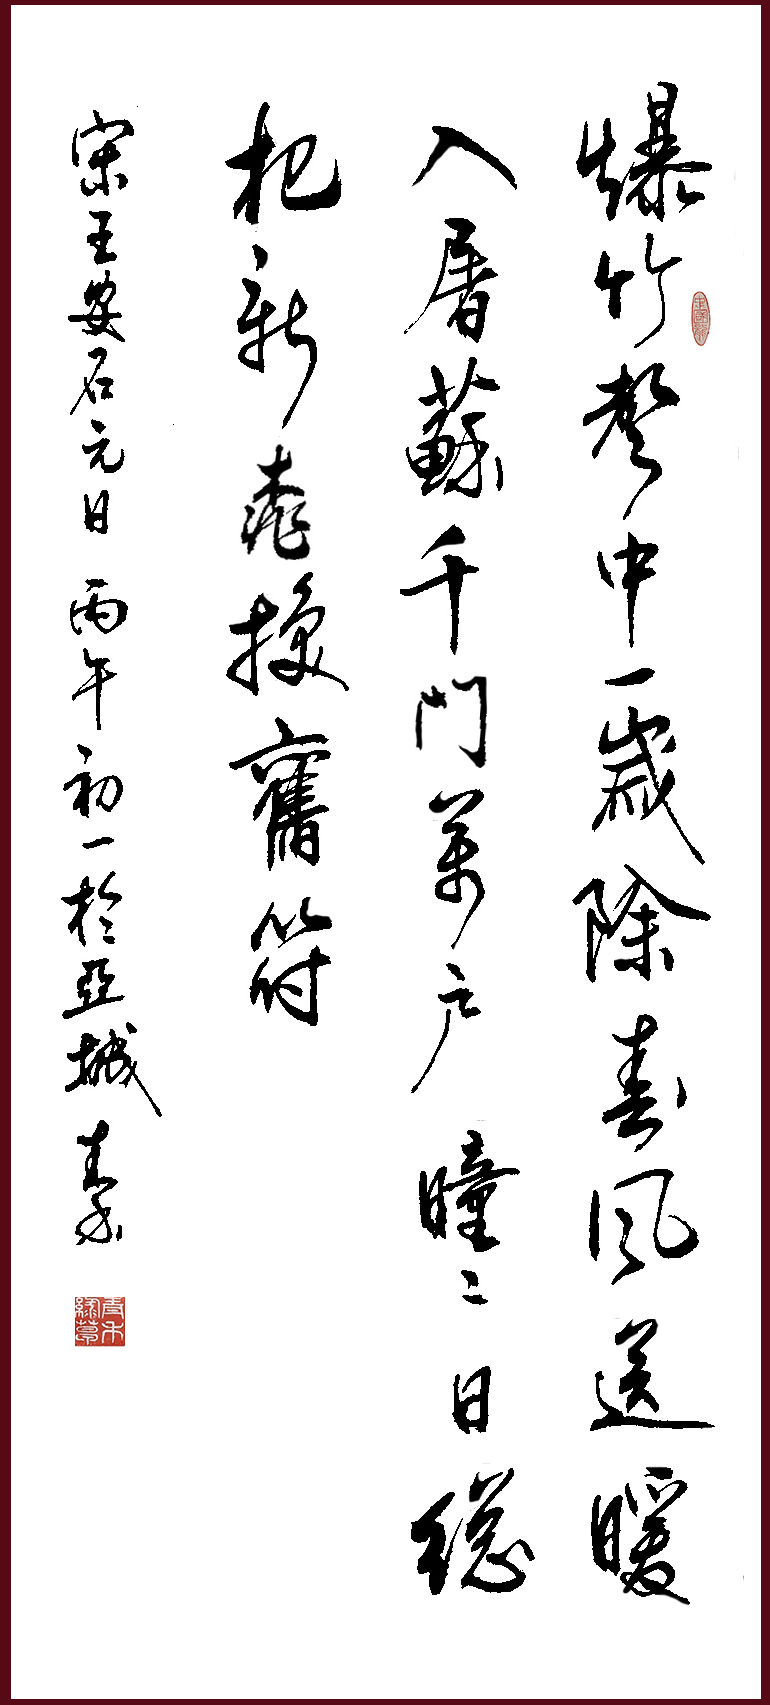 爆竹聲中一歲除春風送暖
入屠蘇千門萬户曈二日總
把新桃換舊符
宋王安石元日 丙午初一於亞城 青禾